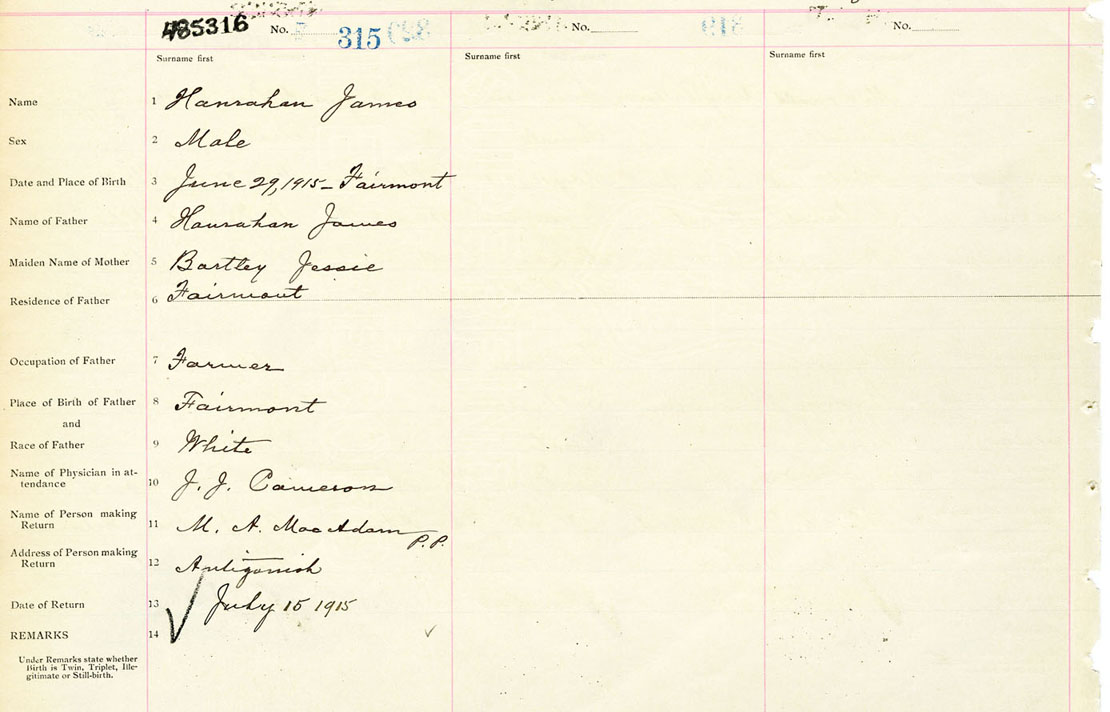 485316 No. 315 No. No.
Surname first Surname first Surname first
Name 1 Hanrahan James
Sex 2 Male
Date and Place of Birth 3 June 29, 1915 - Fairmont
Name of Father 4 Hanrahan James
Maiden Name of Mother 5 Bartley Jessie
Residence of Father 6 Fairmont
Occupation of Father 7 Farmer
Place of Birth of Father 8 Fairmont
and
Race of Father 9 White
Name of Physician in at-
tendance 10 J. J. Cameron
Name of Person making
Return 11 M. A. MacAdam P.P.
Address of Person making
Return 12 Antigonish
Date of Return 13 July 15 1915
REMARKS 14
Under Remarks state whether
Birth is Twin, Triplet, Ille-
gitimate or Still-birth.